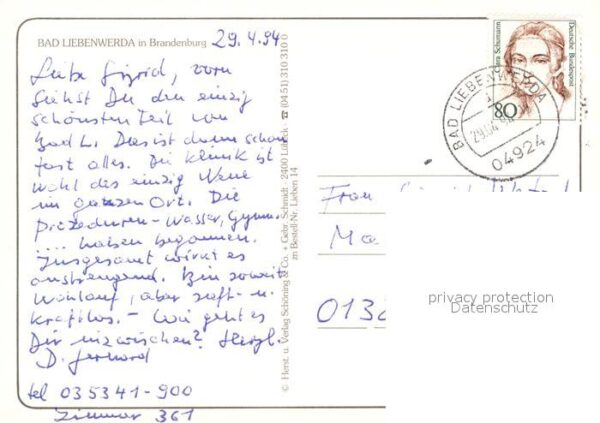 BAD LIEBENWERDA in Brandenburg 29.4.94
Liebe Sigrid, vorn
siehst Du den einzig
schönsten Teil von
Bad L. Das ist dann schon
fast alles. Die Klinik ist
wohl das einzig Neue
im ganzen Ort. Die
Prozeduren - Wasser, Gymn.
.... haben begonnen.
Insgesamt wirkt es
anstrengend. Bin soweit
wohlauf, aber saft- u.
kraftlos. - Wie geht es
Dir inzwischen? Herzl.
D. Gerhard
tel 035341-900
Zimmer 361
© Herst. u. Verlag Schöning & Co. + Gebr. Schmidt · 2400 Lübeck · ☎ (0451) 310 310 0
zu Bestell-Nr. Lieben 14
Clara Schumann
Deutsche Bundespost
80
BAD LIEBENWERDA
29.04.94
04924
Frau
Ma
013
privacy protection
Datenschutz